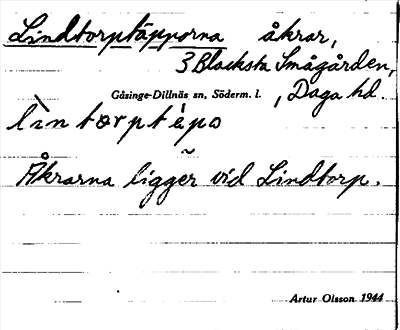 Lindtorptäpporna åkrar,
3 Blacksta Smågården,
Gåsinge-Dillnäs sn, Söderm. l. , Daga hd.
Åkrarna ligger vid Lindtorp.
Artur Olsson 1944